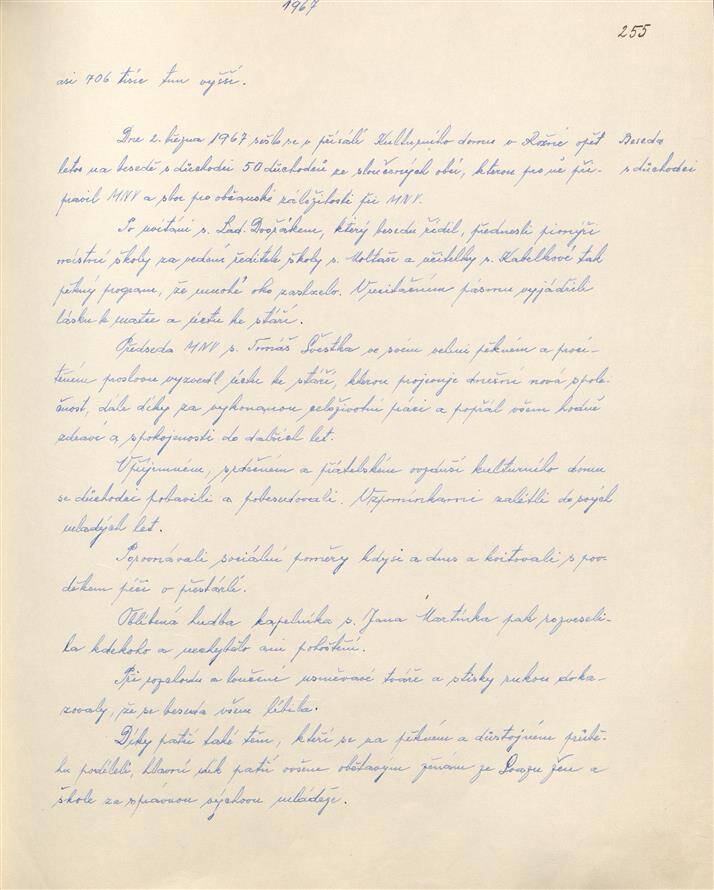 1967
255
asi 706 tisíc tun vyšší.
Dne 2. března 1967 sešlo se v přísálí Kulturního domu v opět
Beseda
letos na besedě s důchodci 50 důchodců ze sloučených obcí, kterou pro ně při-
s důchodci
pravil MNV a sbor pro občanské záležitosti při MNV.
Po uvítání s. Lad. Dvořákem, který besedu řídil, přednesli pionýři
místní školy za vedení ředitele školy s. a učitelky s. Kabelkové tak
pěkný program, že mnohé oko zaslzelo. V recitačním pásmu vyjádřili
lásku k matce a úctu ke stáří.
Předseda MNV s. Tomáš Švestka ve svém velmi pěkném a proci-
těném proslovu vyzvedl úctu ke stáří, kterou projevuje dnešní nová spole-
čnost, dále díky za vykonanou celoživotní práci a popřál všem hodně
zdraví a spokojenosti do dalších let.
V příjemném, srdečném a přátelském ovzduší kulturního domu
se důchodci pobavili a pobesedovali. Vzpomínkami zalétli do svých
mladých let.
Porovnávali sociální poměry kdysi a dnes a kvitovali s pov-
děkem péči o přestárlé.
Oblíbená hudba kapelníka s. Jana Martínka pak rozveseli-
la kdekoho a nechybělo ani pohoštění.
Při rozchodu a loučení usměvavé tváře a stisky rukou doka-
zovaly, že se beseda všem líbila.
Díky patří také těm, kteří se na pěkném a důstojném průbě-
hu podíleli, hlavní dík patří ovšem obětavým ženám ze Svazu žen a
škole za správnou výchovu mládeže.